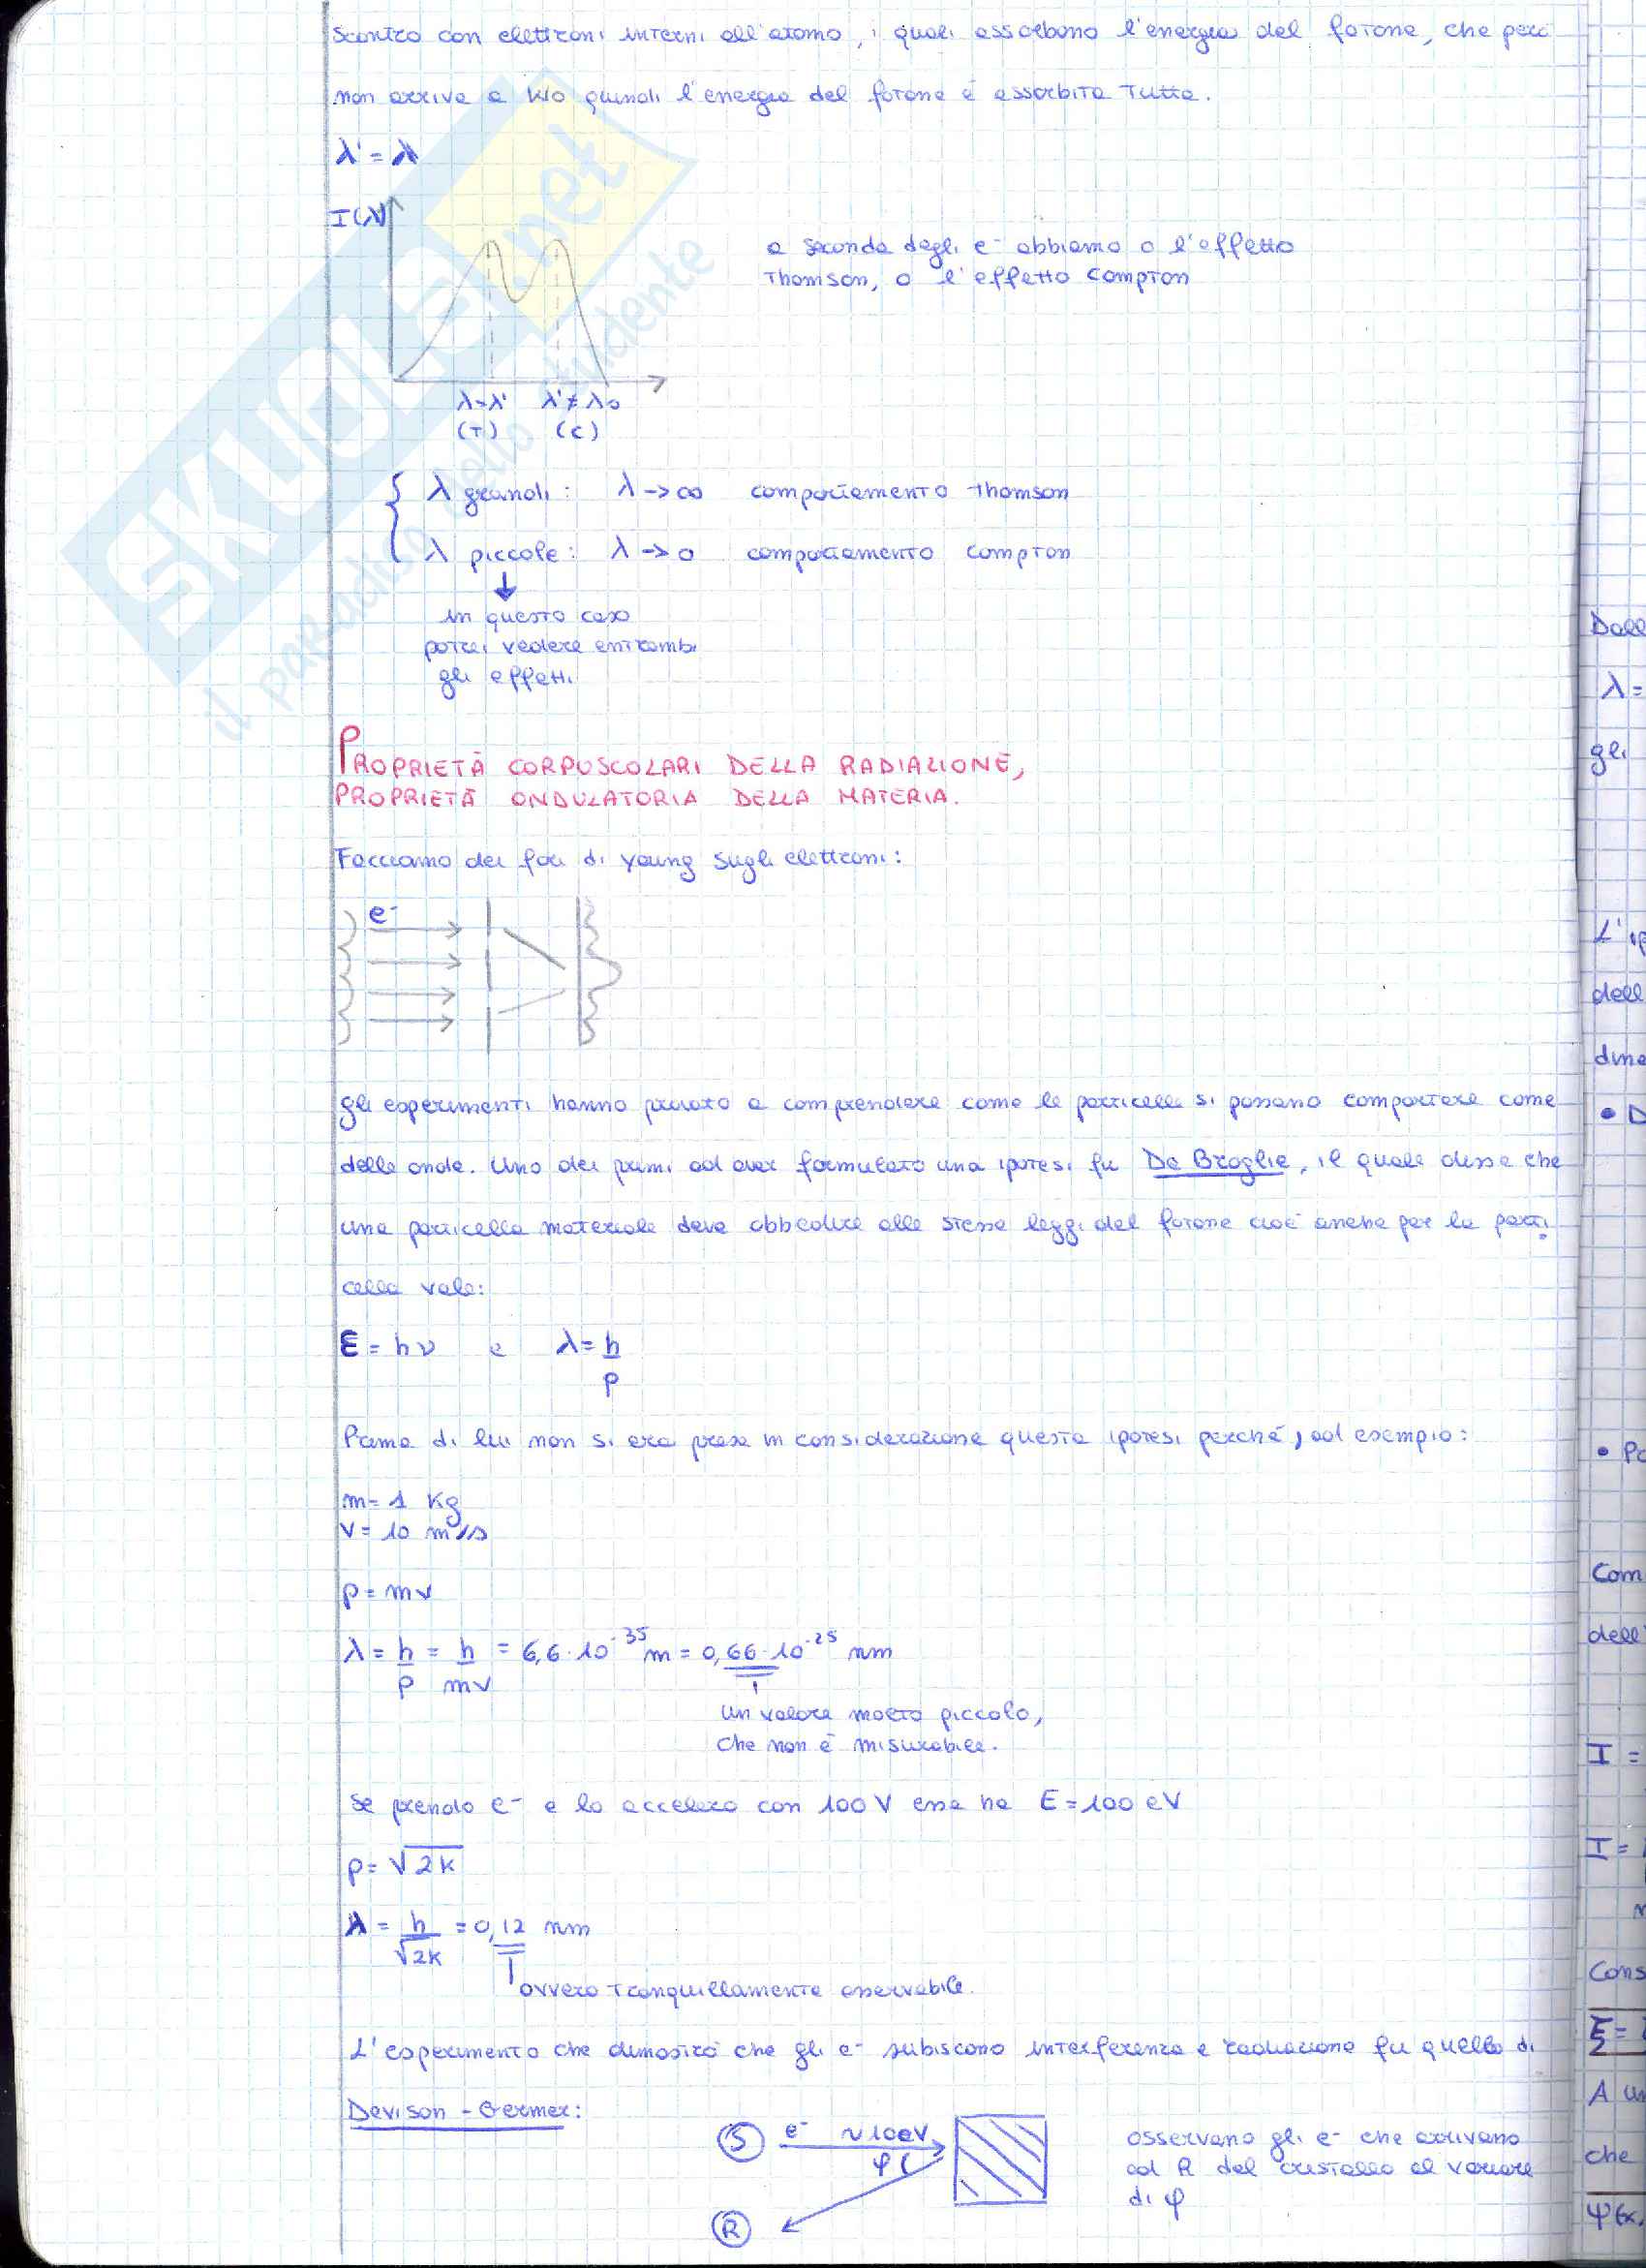 Scontro con elettroni interni all'atomo, i quali assorbono l'energia del fotone, che però
non arriva a k10 quindi l'energia del fotone è assorbita tutta.
λ' = λ
I(λ)
a seconda degli e⁻ abbiamo o l'effetto
Thomson, o l'effetto Compton
λ=λ' λ'≠λ₀
(T) (C)
λ grandi: λ→∞ comportamento Thomson
λ piccole: λ→0 comportamento Compton
in questo caso
potrei vedere entrambi
gli effetti
PROPRIETÀ CORPUSCOLARI DELLA RADIAZIONE,
PROPRIETÀ ONDULATORIA DELLA MATERIA.
Facciamo dei fori di young sugli elettroni:
e⁻
gli esperimenti hanno provato a comprendere come le particelle si possano comportare come
delle onde. Uno dei primi ad aver formulato una ipotesi fu De Broglie, il quale disse che
una particella materiale deve obbedire alle stesse leggi del fotone cioè anche per la parti
cella vale:
E = hν e λ = h/p
Prima di lui non si era presa in considerazione questa ipotesi perché, ad esempio:
m = 1 Kg
v = 10 m/s
p = mv
λ = h/p = h/mv = 6,6·10⁻³⁵ m = 0,66·10⁻²⁵ nm
un valore molto piccolo,
che non è misurabile.
Se prendo e⁻ e lo accelero con 100 V essa ha E = 100 eV
p = √2k
λ = h/√2k = 0,12 nm
ovvero tranquillamente osservabile.
L'esperimento che dimostrò che gli e⁻ subiscono interferenza e radiazione fu quello di
Devison - Germer:
S e⁻ ~100eV
φ
R
osservano gli e⁻ che arrivano
ad R dal cristallo al variare
di φ
SKUOLA.net
il paradiso dello studente
Dall
λ =
gli
L'ip
dell
dine
• D
• Po
Com
dell'
I =
I =
Cons
ξ =
A un
che
ψ(x,